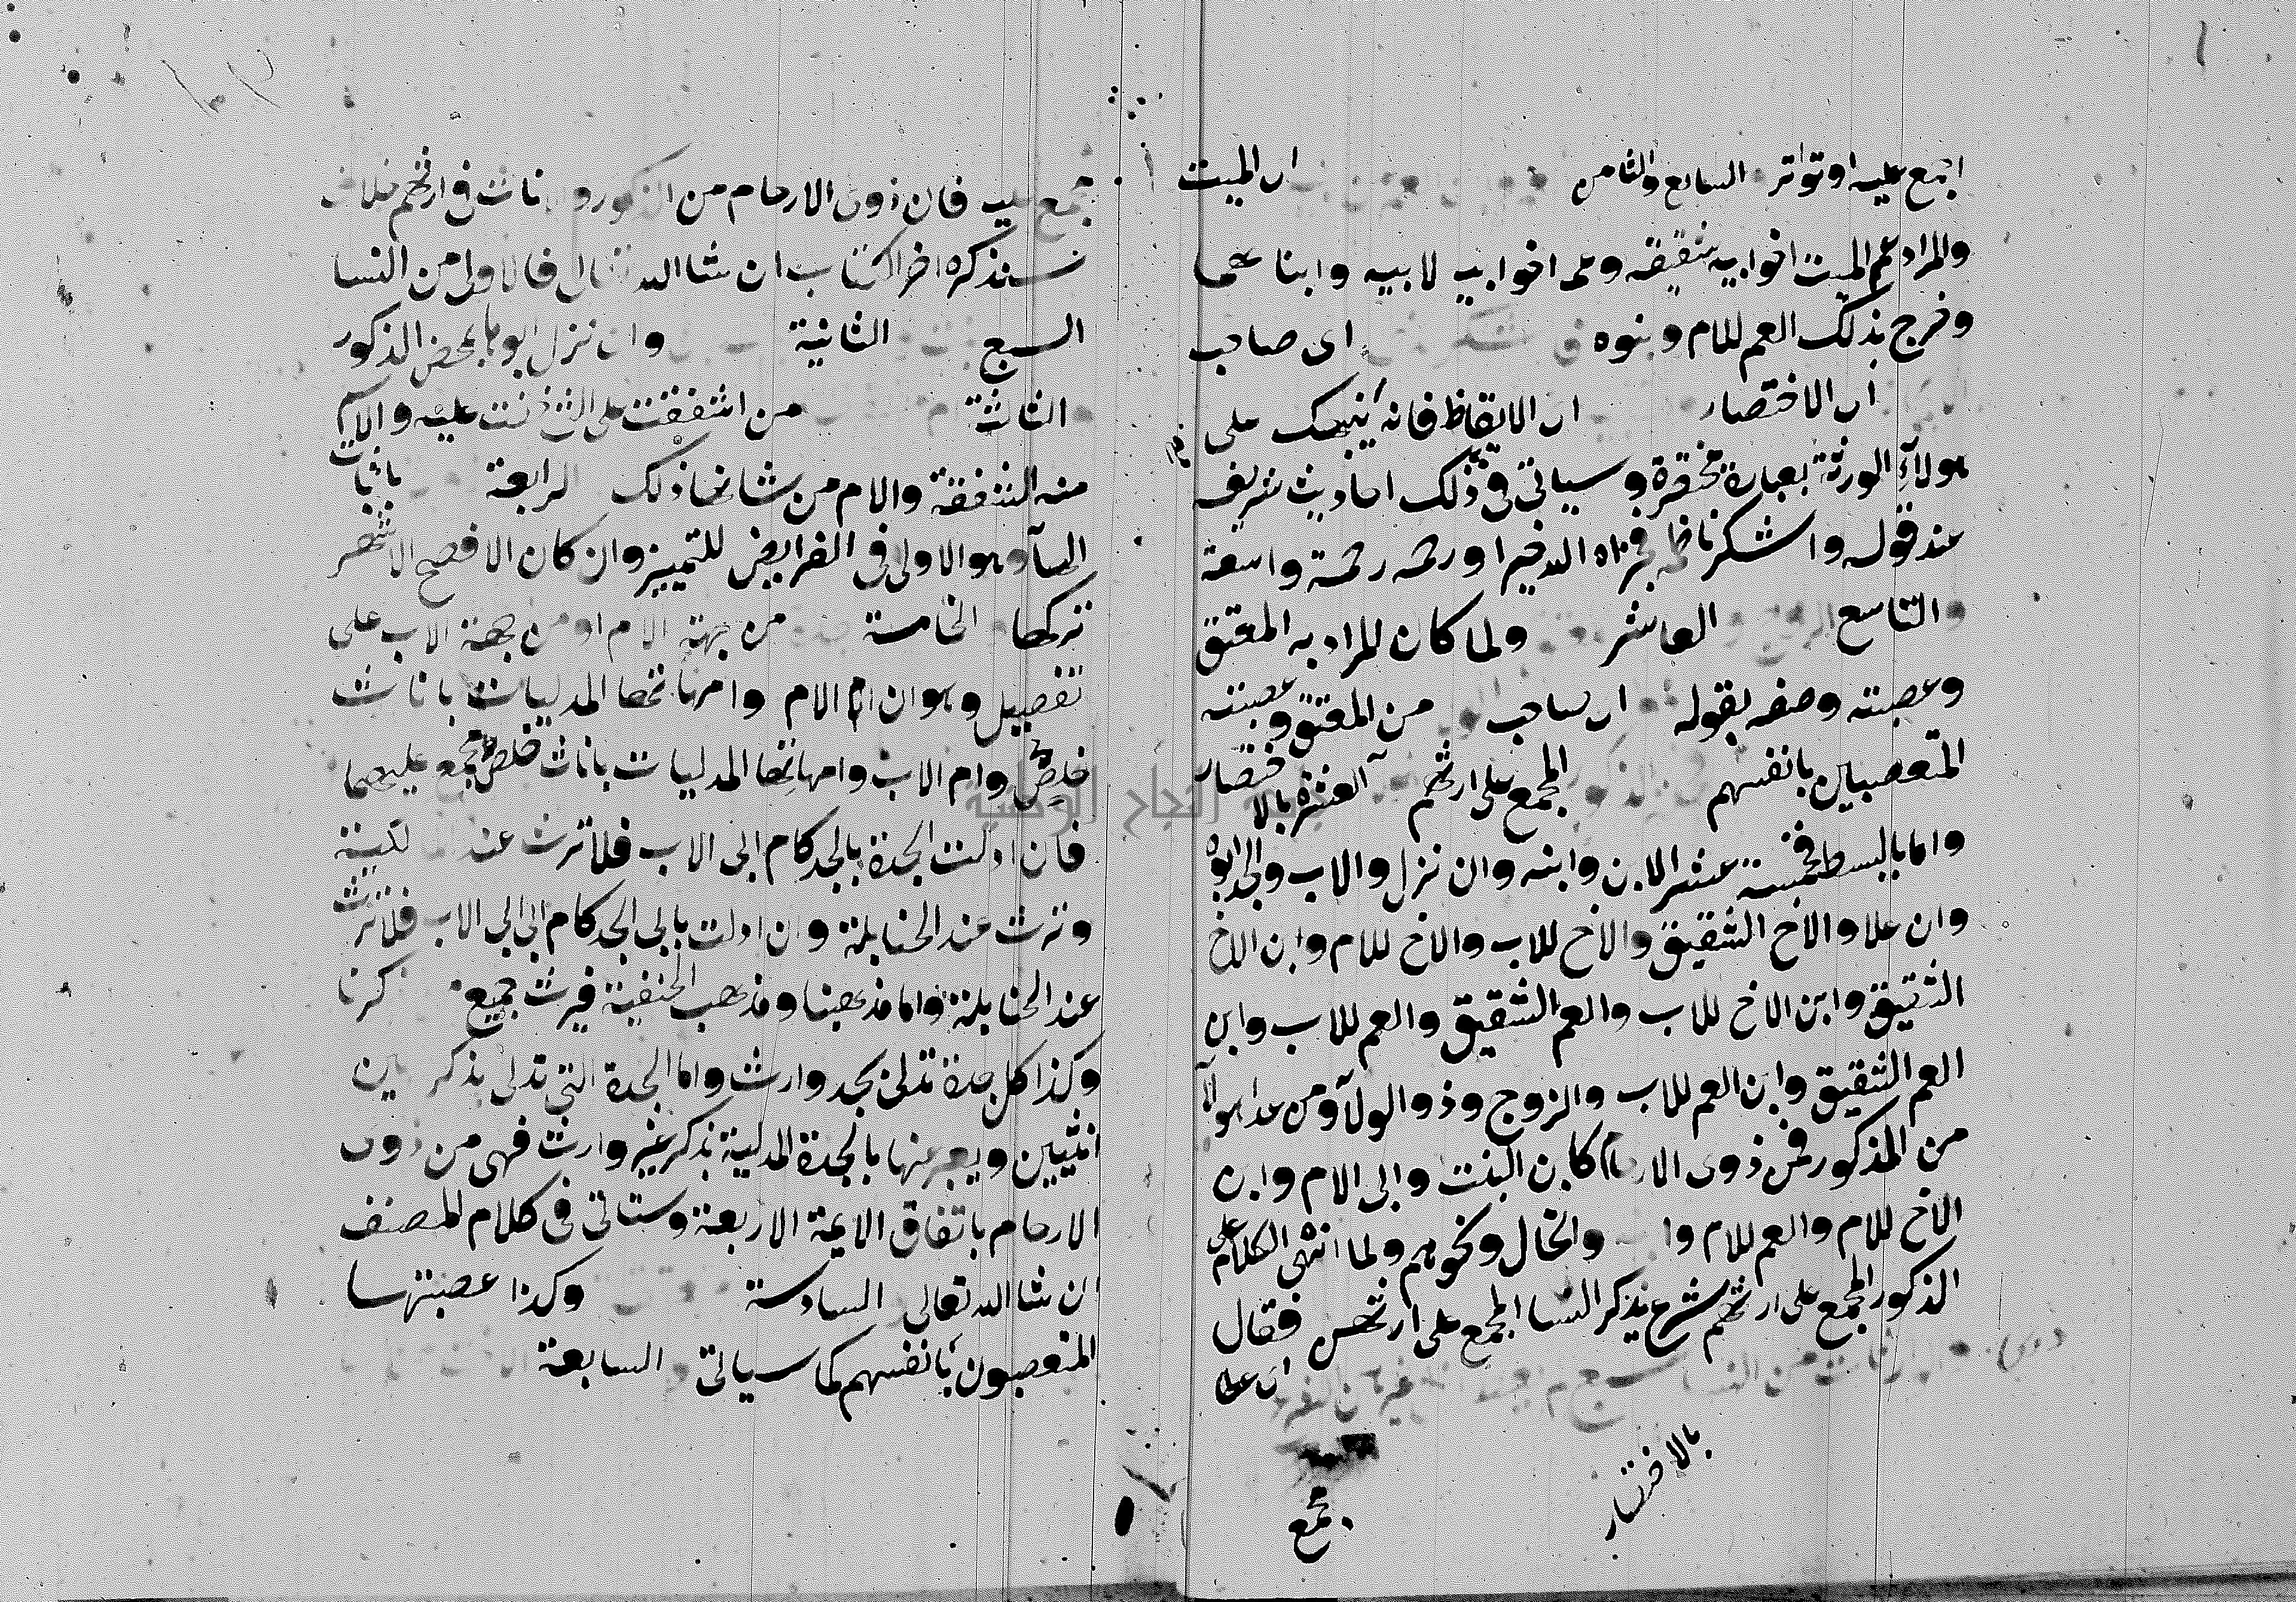 اجمع عليه او تواتر السابع والثامن اى الميت
والمراد عم الميت اخو ابيه شقيقه وعم اخو ابيه لابيه وابنا عما
وخرج بذلك العم للام وبنوه اى صاحب
اى الاختصار اى الايقاظ فانه ينبهك على
هولاء الورثة بعبارة مختصرة وسياتى فى ذلك احاديث شريف
عند قوله واشكر ناظمه فجزاه الله خيرا ورحمه رحمة واسعة
والتاسع العاشر ولما كان المراد به المعتق
وعصبته وصفه بقوله اى صاحب من المعتق وعصبته
المتعصبين بانفسهم المجمع على ارثهم العشرة بالاختصار
واما بالبسط فخمسة عشر الابن وابنه وان نزل والاب والجد ابوه
وان علا والاخ الشقيق والاخ للاب والاخ للام وابن الاخ
الشقيق وابن الاخ للاب والعم الشقيق والعم للاب وابن
العم الشقيق وابن العم للاب والزوج وذو الولآ ومن عدا هولآ
من المذكور فمن ذوى الارحام كابن البنت وابى الام وابن
الاخ للام والعم للام والخال ونحوهم ولما انتهى الكلام على
الذكور المجمع على ارثهم شرع بذكر النسا المجمع على ارثهن فقال
اى على
بالاختصار
مجمع
جمع عليه فان ذوى الارحام من الذكور والاناث فى ارثهم خلاف
سنذكره اخر الكتاب ان شا الله تعالى فالاولى من النسا
السبع الثانية وان نزل ابوها بمحض الذكور
الثالثة من اشفقت على الشئ خفت عليه والاسم
منه الشفقة والام من شانها ذلك الرابعة باثبات
الهآ وهو الاولى فى الفرايض للتمييز وان كان الافصح الاشهر
تركها الخامسة من جهة الام او من جهة الاب على
تفصيل وهو ان ام الام وامهاتها المدليات باناث
خلص وام الاب وامهاتها المدليات باناث خلص مجمع عليهما
فان ادلت الجدة بالجد كام ابى الاب فلا ترث عند المالكية
وترث عند الحنابلة وان ادلت بابى الجد كام ابى ابى الاب فلا ترث
عند الحنابلة واما مذهبنا ومذهب الحنفية فيرث جميع كرنا
وكذا كل جدة تدلى بجد وارث واما الجدة التى تدلى بذكر بين
انثيين ويعبر عنها بالجدة المدلية بذكر غير وارث فهى من ذوى
الارحام باتفاق الايمة الاربعة وستاتى فى كلام المصنف
ان شا الله تعالى السادسة وكذا عصبتها
المتعصبون بانفسهم كما سياتى السابعة
جامعة النجاح الوطنية